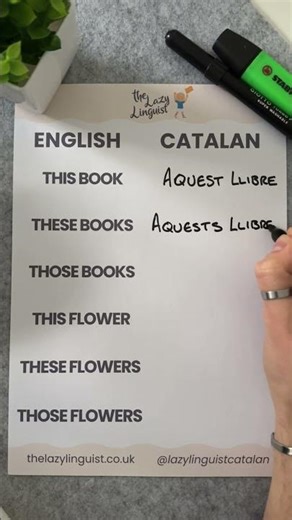 the
Lazy
Linguist
ENGLISH CATALAN
THIS BOOK AQUEST LLIBRE
THESE BOOKS AQUESTS LLIBRE
THOSE BOOKS
THIS FLOWER
THESE FLOWERS
THOSE FLOWERS
thelazylinguist.co.uk @lazylinguistcatalan